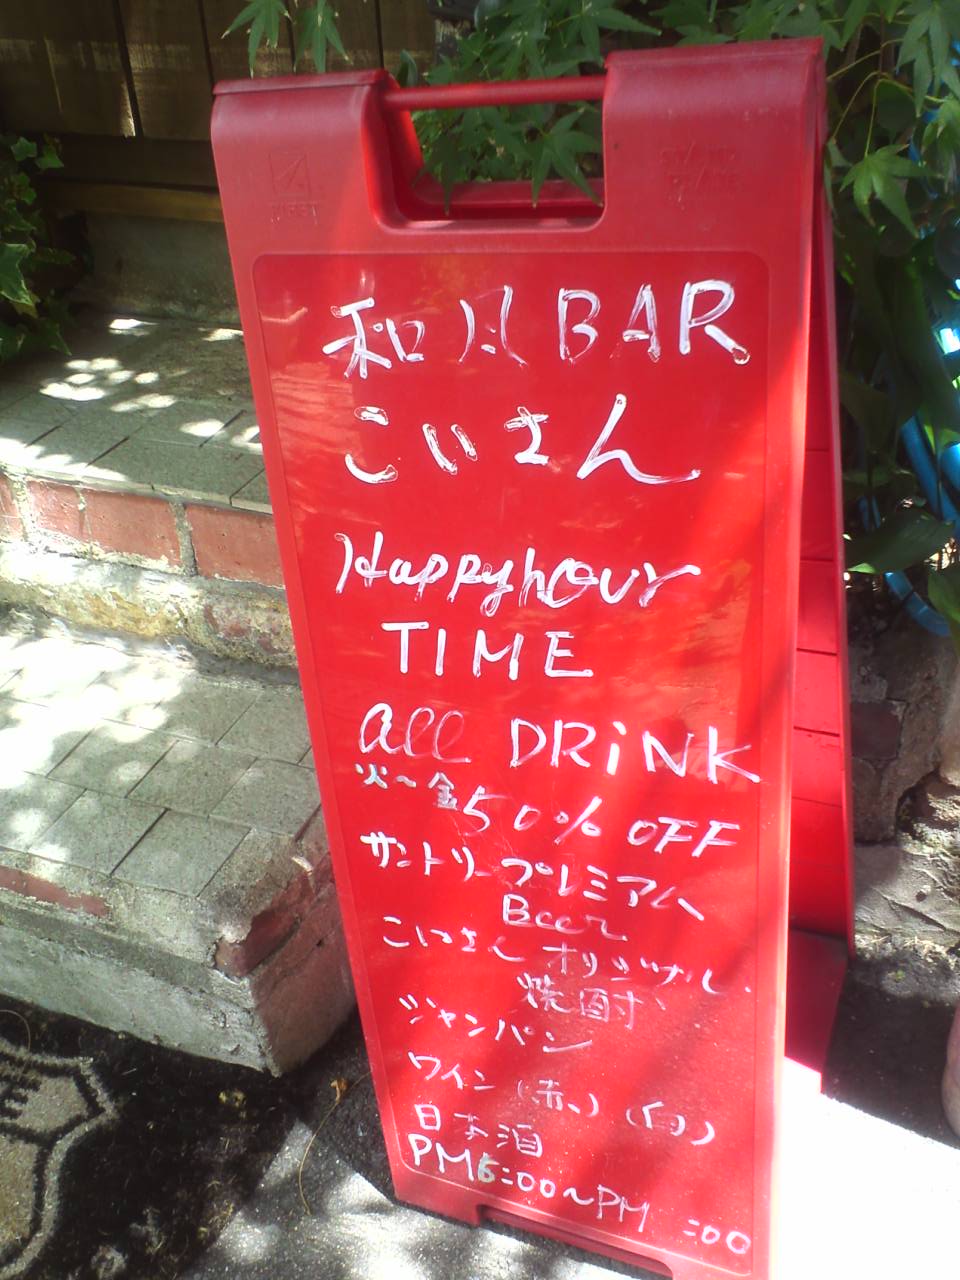 和風BAR
こいさん
Happyhour
TIME
all DRiNK
火〜金50% OFF
サントリープレミアム
Beer
こいさんオリジナル
焼酎
シャンパン
ワイン(赤)(白)
日本酒
PM6:00〜PM :00